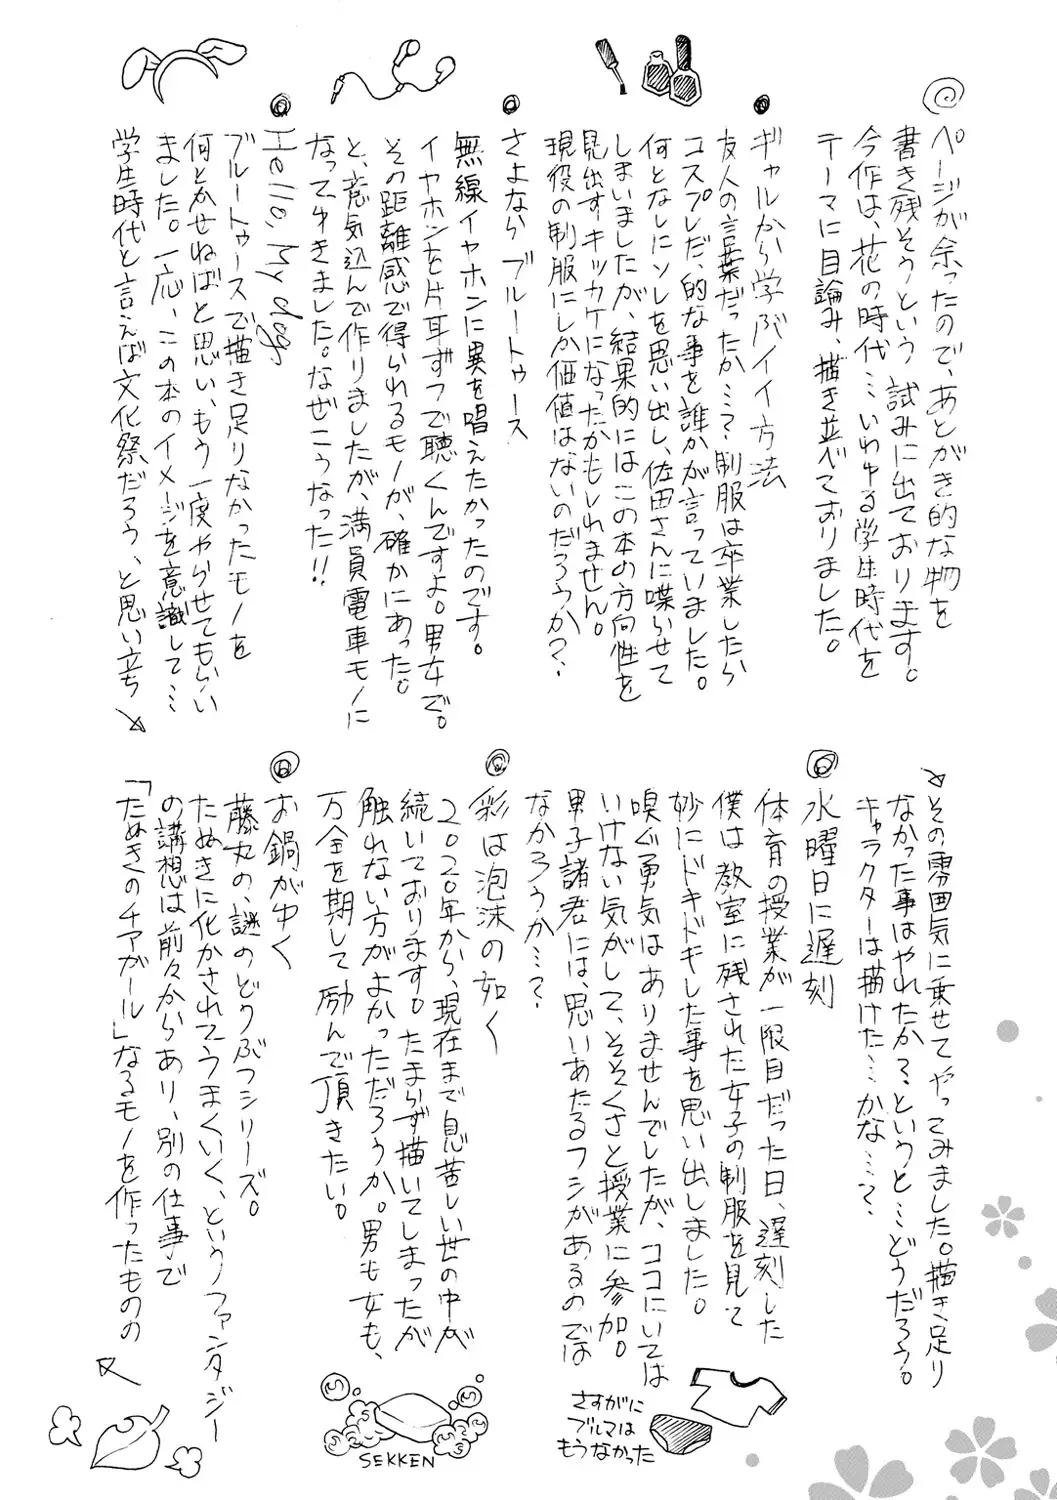 ページが余ったので、あとがき的な物を
書き残そうという試みに出ております。
今作は、花の時代…いわゆる学生時代を
テーマに目論み、描き並べておりました。
ギャルから学ぶイイ方法
友人の言葉だったか…？制服は卒業したら
コスプレだ、的な事を誰かが言っていました。
何となしにソレを思い出し、佐田さんに喋らせて
しまいましたが、結果的にはこの本の方向性を
見出すキッカケになったかもしれません。
現役の制服にしか価値はないのだろうか？
さよなら ブルートゥース
無線イヤホンに異を唱えたかったのです。
イヤホンを片耳ずつで聴くんですよ。男女で。
その距離感で得られるモノが、確かにあった。
と、意気込んで作りましたが、満員電車モノに
なってゆきました。なぜこうなった!!
Hello, My dog,
ブルートゥースで描き足りなかったモノを
何とかせねばと思い、もう一度やらせてもらい
ました。一応、この本のイメージを意識して…
学生時代と言えば文化祭だろう、と思い立ち
その雰囲気に乗せてやってみました。描き足り
なかった事はやれたかな、というと…どうだろう。
キャラクターは描けた…かな…？
水曜日に遅刻
体育の授業が一限目だった日、遅刻した
僕は教室に残された女子の制服を見て
妙にドキドキした事を思い出しました。
嗅ぐ勇気はありませんでしたが、ココにいては
いけない気がして、そそくさと授業に参加。
男子諸君には、思いあたるフシがあるのでは
なかろうか…？
彩は泡沫の如く
2020年から、現在まで息苦しい世の中が
続いております。たまらず描いてしまったが
触れない方がよかっただろうか。男も女も、
万全を期して励んで頂きたい。
お鍋がゆく
藤丸の、謎のどうぶつシリーズ。
たぬきに化かされてうまくいく、というファンタジー
の講想は前々からあり、別の仕事で
「たぬきのチアガール」なるモノを作ったものの
さすがに
ブルマは
もうなかった
SEKKEN